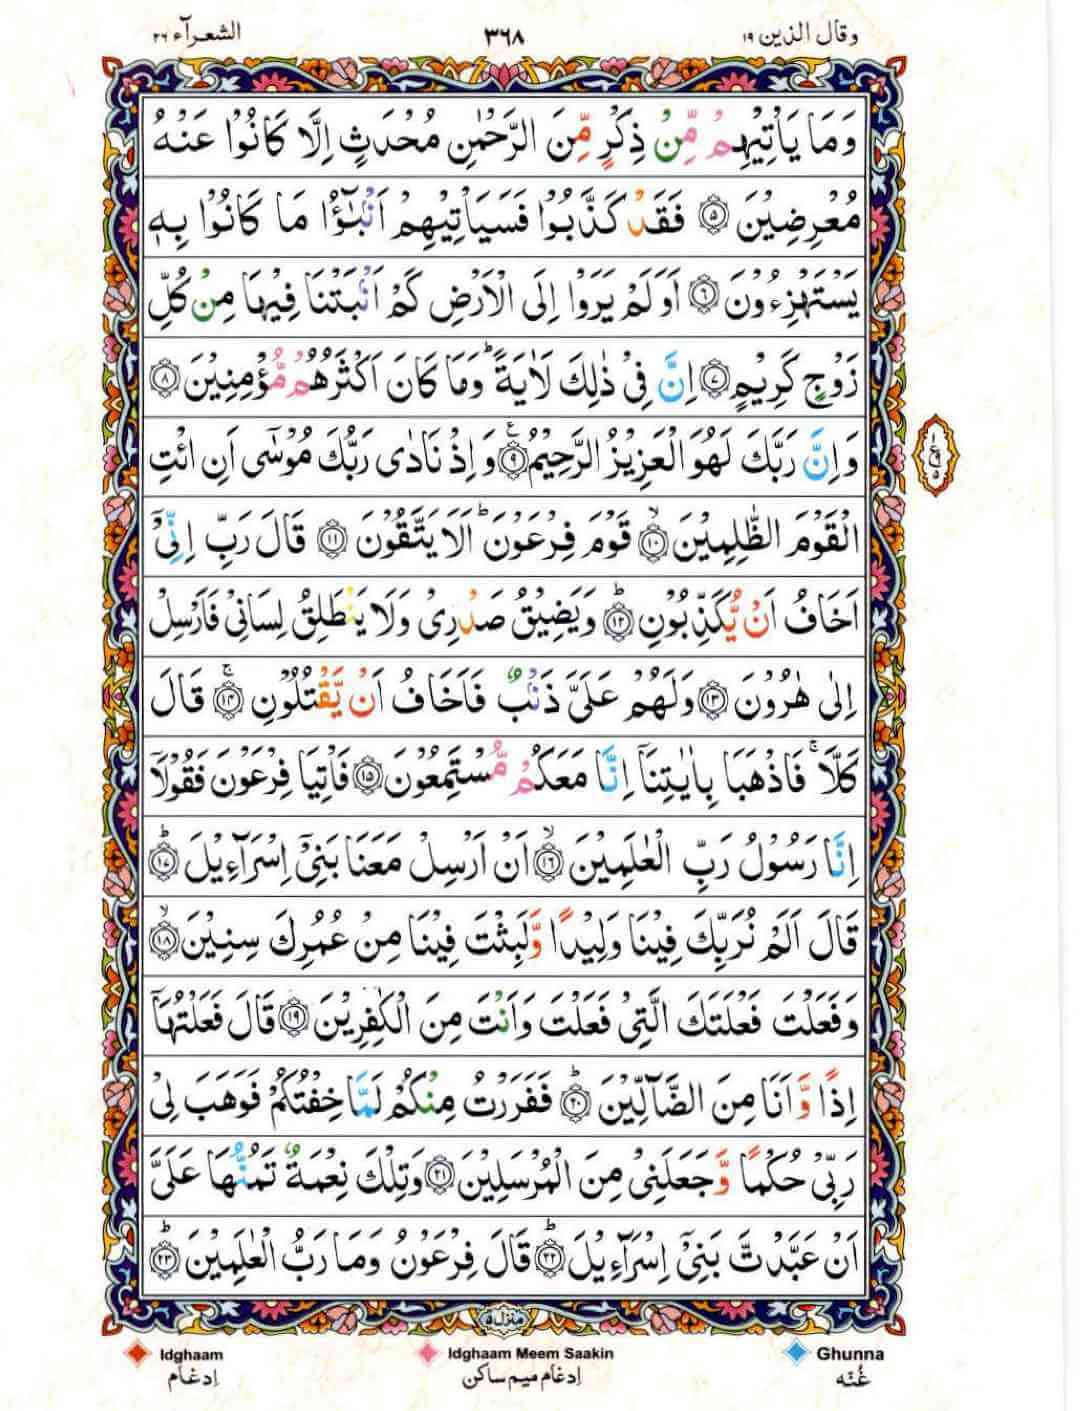 وقال الذین ۱۹ ۳۶۸ الشعرآء ۲۶
وَمَا يَاْتِيْهِمْ مِّنْ ذِكْرٍ مِّنَ الرَّحْمٰنِ مُحْدَثٍ اِلَّا كَانُوْا عَنْهُ
مُعْرِضِيْنَ ۵ فَقَدْ كَذَّبُوْا فَسَيَاْتِيْهِمْ اَنْۢبٰٓؤُا مَا كَانُوْا بِهٖ
يَسْتَهْزِءُوْنَ ۶ اَوَلَمْ يَرَوْا اِلَى الْاَرْضِ كَمْ اَنْۢبَتْنَا فِيْهَا مِنْ كُلِّ
زَوْجٍ كَرِيْمٍ ۷ اِنَّ فِيْ ذٰلِكَ لَاٰيَةً ؕ وَمَا كَانَ اَكْثَرُهُمْ مُّؤْمِنِيْنَ ۸
وَاِنَّ رَبَّكَ لَهُوَ الْعَزِيْزُ الرَّحِيْمُ ۹ ع وَاِذْ نَادٰى رَبُّكَ مُوْسٰٓى اَنِ ائْتِ
الْقَوْمَ الظّٰلِمِيْنَ ۱۰ ۙ قَوْمَ فِرْعَوْنَ ؕ اَلَا يَتَّقُوْنَ ۱۱ قَالَ رَبِّ اِنِّيْٓ
اَخَافُ اَنْ يُّكَذِّبُوْنِ ۱۲ ؕ وَيَضِيْقُ صَدْرِيْ وَلَا يَنْطَلِقُ لِسَانِيْ فَاَرْسِلْ
اِلٰى هٰرُوْنَ ۱۳ وَلَهُمْ عَلَيَّ ذَنْۢبٌ فَاَخَافُ اَنْ يَّقْتُلُوْنِ ۱۴ ۚ قَالَ
كَلَّا ۚ فَاذْهَبَا بِاٰيٰتِنَآ اِنَّا مَعَكُمْ مُّسْتَمِعُوْنَ ۱۵ فَاْتِيَا فِرْعَوْنَ فَقُوْلَآ
اِنَّا رَسُوْلُ رَبِّ الْعٰلَمِيْنَ ۱۶ ۙ اَنْ اَرْسِلْ مَعَنَا بَنِيْٓ اِسْرَآءِيْلَ ۱۷ ؕ
قَالَ اَلَمْ نُرَبِّكَ فِيْنَا وَلِيْدًا وَّلَبِثْتَ فِيْنَا مِنْ عُمُرِكَ سِنِيْنَ ۱۸ ۙ
وَفَعَلْتَ فَعْلَتَكَ الَّتِيْ فَعَلْتَ وَاَنْتَ مِنَ الْكٰفِرِيْنَ ۱۹ قَالَ فَعَلْتُهَآ
اِذًا وَّاَنَا مِنَ الضَّآلِّيْنَ ۲۰ ؕ فَفَرَرْتُ مِنْكُمْ لَمَّا خِفْتُكُمْ فَوَهَبَ لِيْ
رَبِّيْ حُكْمًا وَّجَعَلَنِيْ مِنَ الْمُرْسَلِيْنَ ۲۱ وَتِلْكَ نِعْمَةٌ تَمُنُّهَا عَلَيَّ
اَنْ عَبَّدْتَّ بَنِيْٓ اِسْرَآءِيْلَ ۲۲ ؕ قَالَ فِرْعَوْنُ وَمَا رَبُّ الْعٰلَمِيْنَ ۲۳ ؕ
منزل ۵
Idghaam Idghaam Meem Saakin Ghunna
اِدغام اِدغام میم ساکن غُنّه